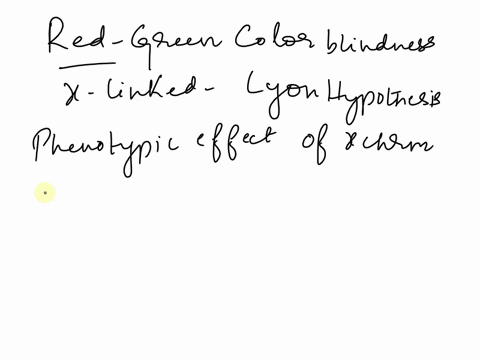 Red-Green Color blindness
x-linked- Lyon Hypothesis
Phenotypic effect of x chrm